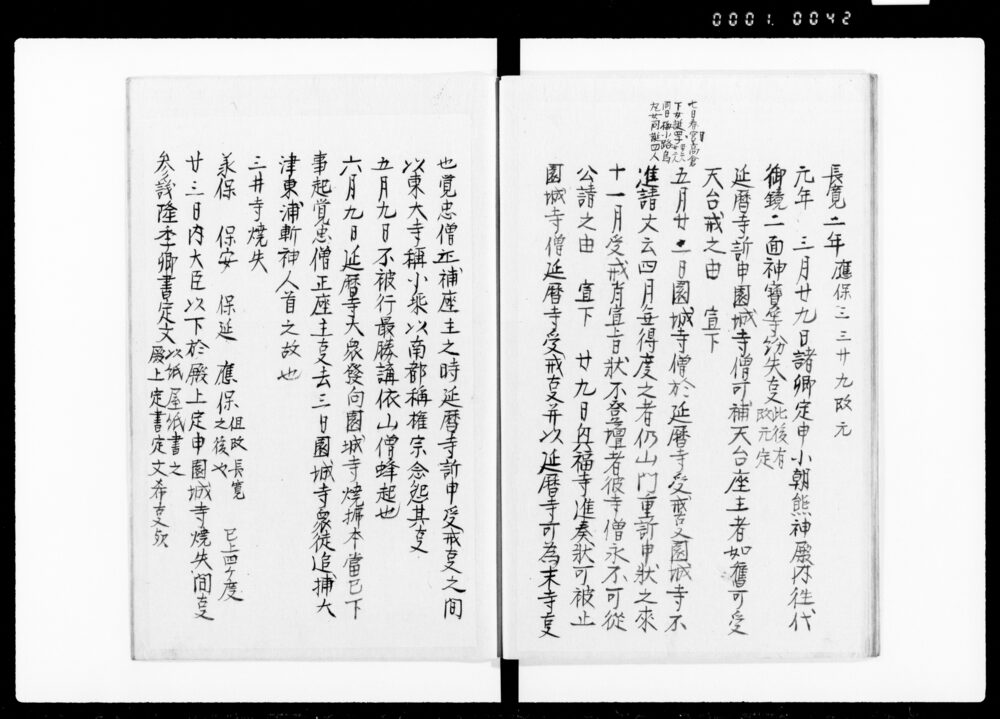 0001 0042
長寛二年 應保三三廿九改元
元年 三月廿九日諸卿定申小朝熊神殿内往代
御鏡二面神寶等紛失事 此後有改元定
延暦寺訴申園城寺僧可補天台座主者如舊可受
天台戒之由 宣下
七日春宮高倉
下女誕四子
同日梅小路烏
丸女同誕四人
五月廿二日園城寺僧於延暦寺受戒事園城寺不
准請文云四月毎得度之者仍山門重訴申状之來
十一月受戒有宣旨状不登壇者彼寺僧永不可從
公請之由 宣下 廿九日興福寺進奏状可被止
園城寺僧延暦寺受戒事并以延暦寺可為末寺事
也覚忠僧正補座主之時延暦寺訴申受戒事之間
以東大寺稱小乘以南都稱権宗念怨其事
五月九日不被行最勝講依山僧蜂起也
六月九日延暦寺大衆發向園城寺燒掃本當已下
事起覚忠僧正座主事去三日園城寺衆徒追捕大
津東浦斬神人首之故也
三井寺燒失
承保 保安 保延 應保 但改長寛之後也 已上四ケ度
廿三日内大臣以下於殿上定申園城寺燒失間事
参議隆季卿書定文 以紙屋紙書之 殿上定書定文希事歟